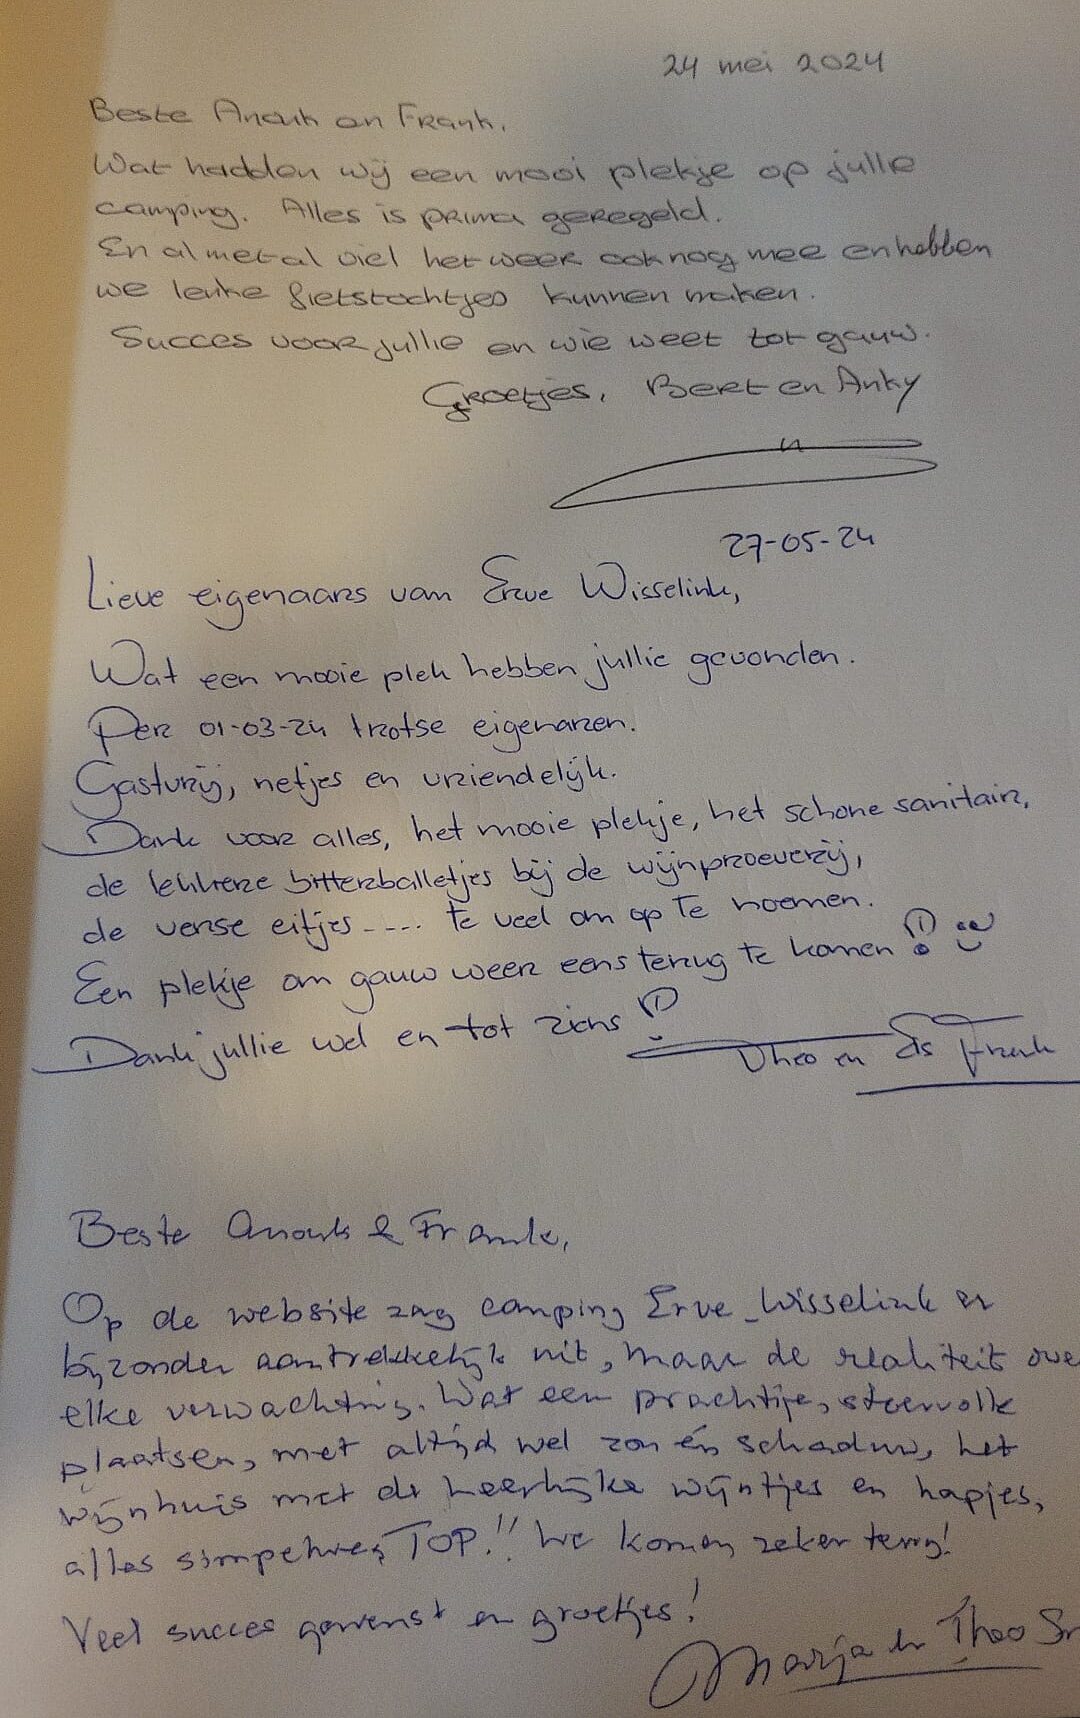 24 mei 2024
Beste Anouk en Frank.
Wat hadden wij een mooi plekje op jullie
camping. Alles is prima geregeld.
En al met al viel het weer ook nog mee en hebben
we leuke fietstochtjes kunnen maken.
Succes voor jullie en wie weet tot gauw.
Groetjes, Bert en Anky
27-05-24
Lieve eigenaars van Erve Wisselink,
Wat een mooie plek hebben jullie gevonden.
Per 01-03-24 trotse eigenaren.
Gastvrij, netjes en vriendelijk.
Dank voor alles, het mooie plekje, het schone sanitair,
de lekkere bitterballetjes bij de wijnproeverij,
de verse eitjes .... te veel om op te noemen.
Een plekje om gauw weer eens terug te komen!
Dank jullie wel en tot ziens!
Theo en Els
Beste Anouk & Frank,
Op de website zag camping Erve Wisselink er
bijzonder aantrekkelijk uit, maar de realiteit
elke verwachting. Wat een prachtige, sfeervolle
plaatsen, met altijd wel zon én schaduw, het
wijnhuis met de heerlijke wijntjes en hapjes,
alles simpelweg TOP!! We komen zeker terug!
Veel succes gewenst en groetjes!
Marja en Theo